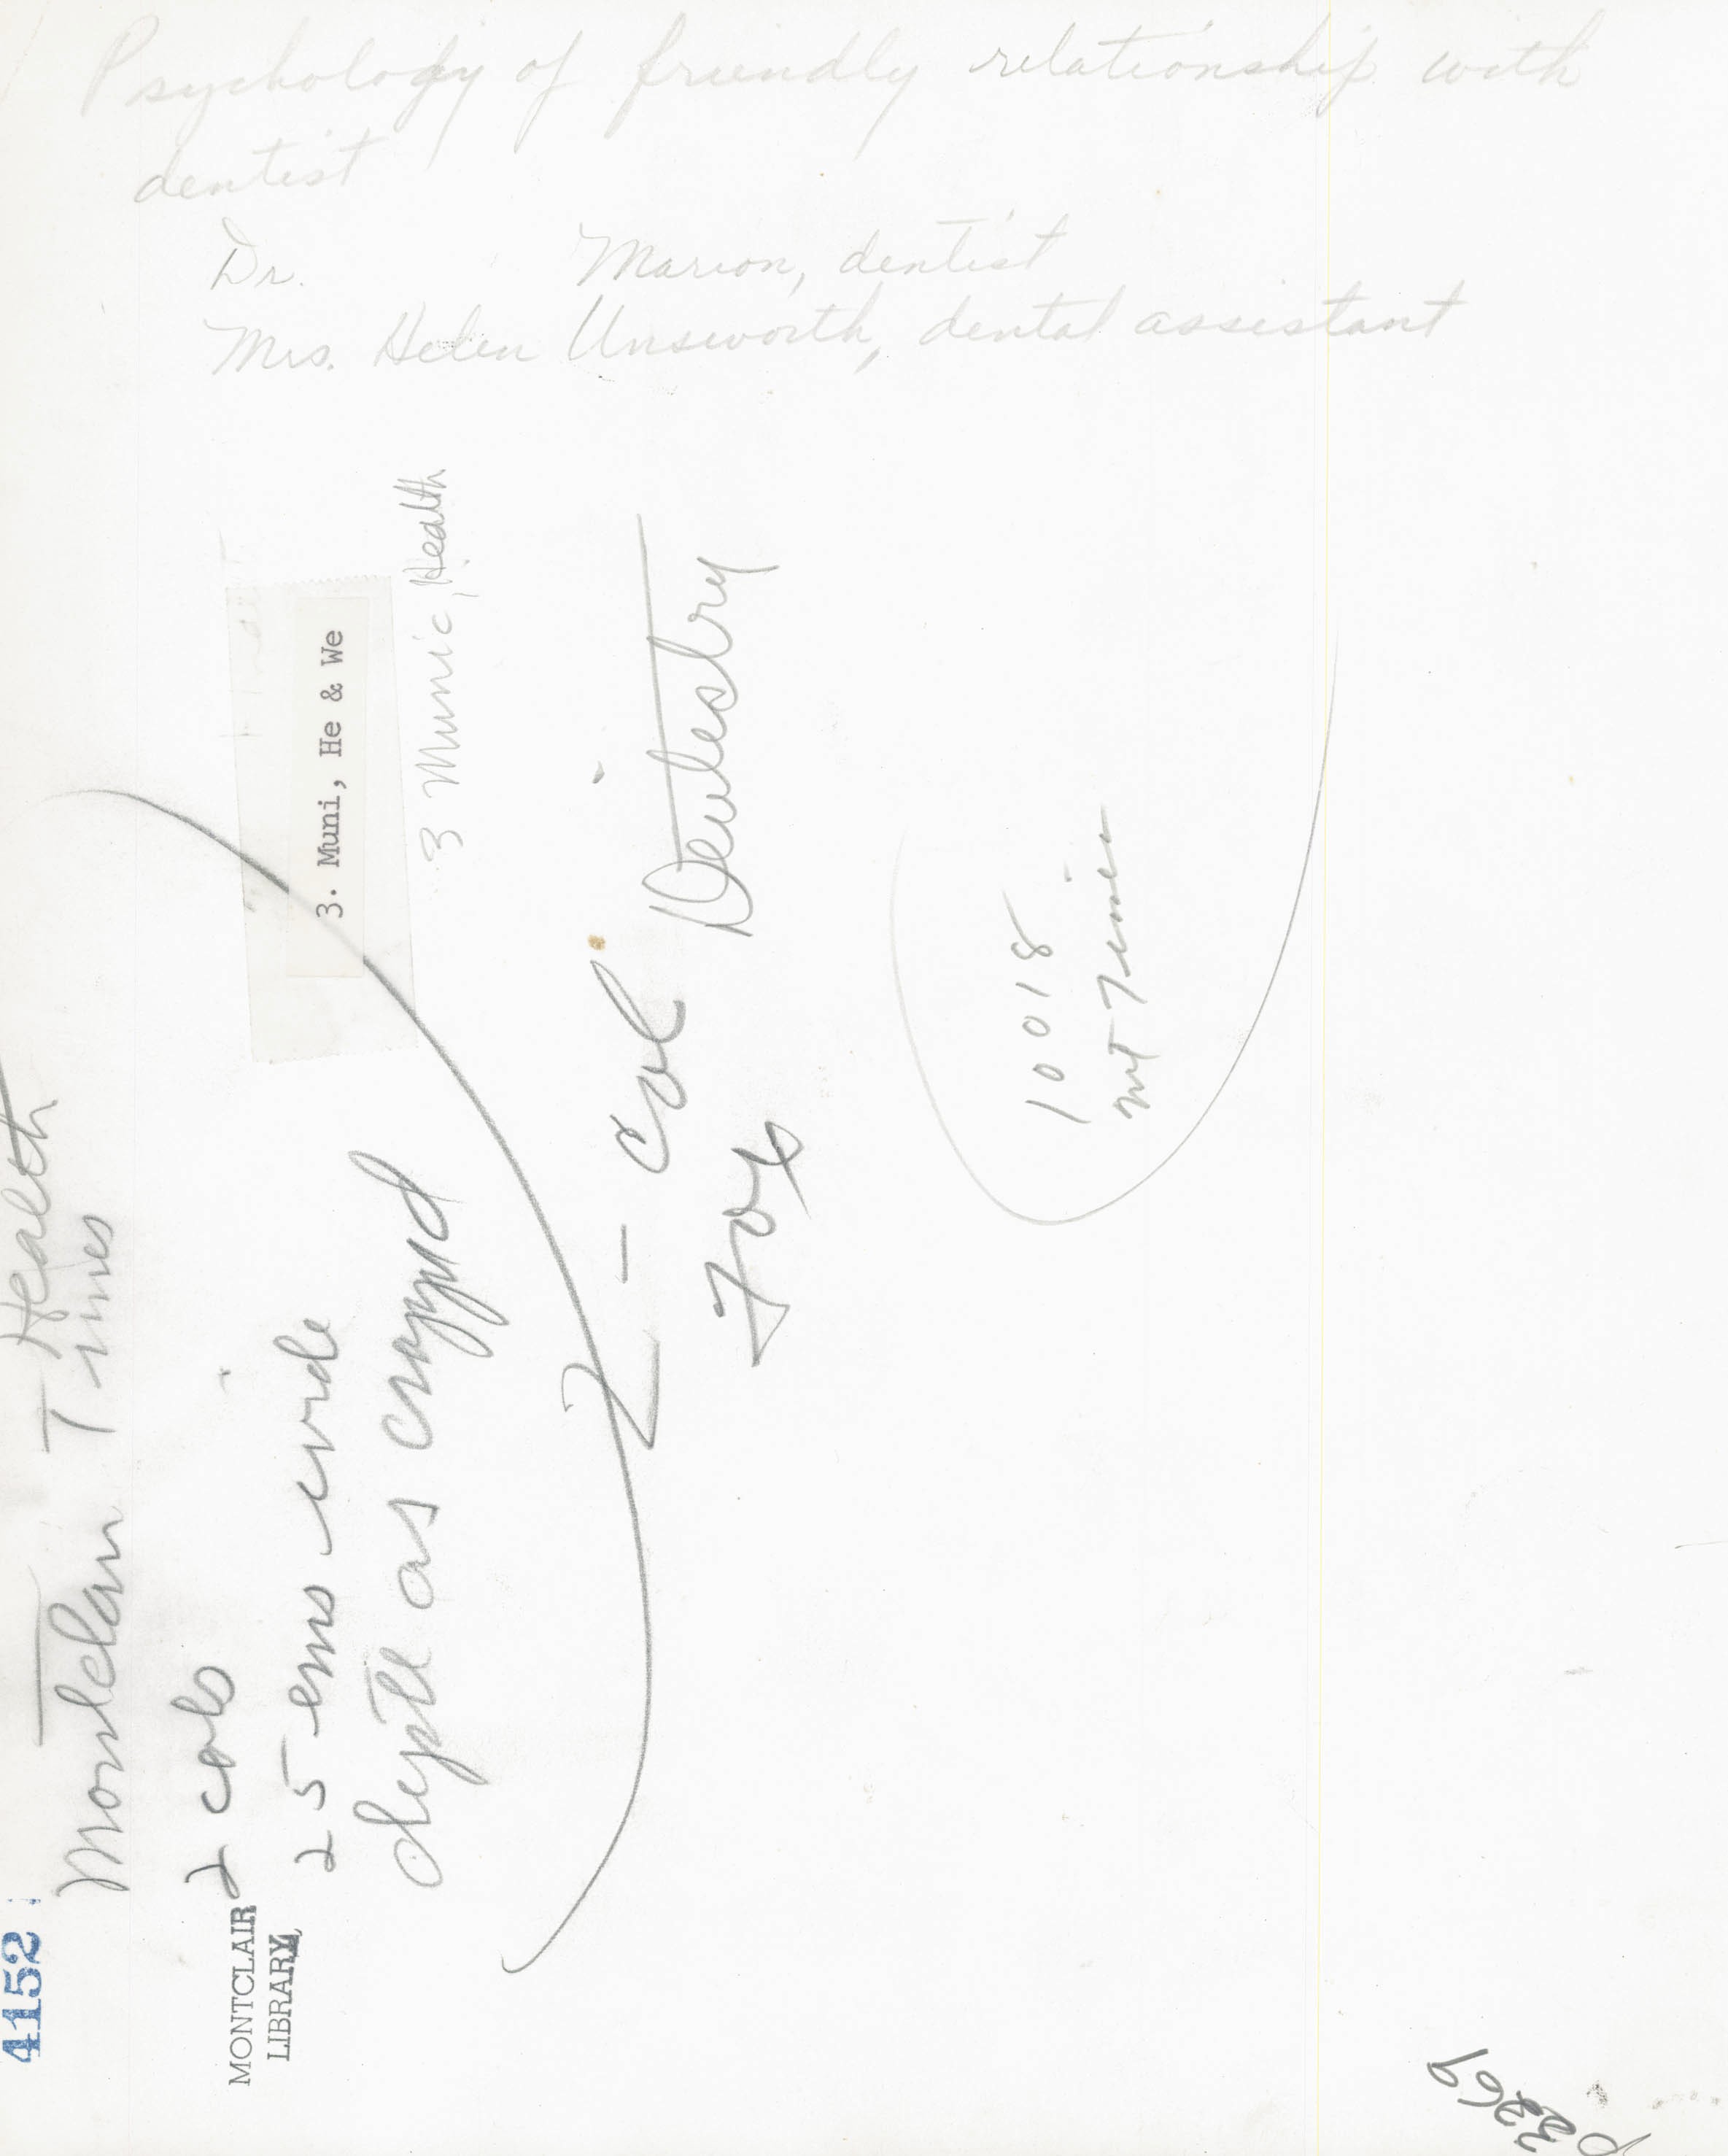 Psychology of friendly relationship with
dentist
Dr. Marion, dentist
Mrs. Helen Unsworth, dental assistant
3. Muni, He & We
3 Munic, Health
Health
Montclair Times
2 cols
25 ems wide
depth as cropped
2 - col
Dentistry
Fox
10018
MT Times
4152
MONTCLAIR
LIBRARY